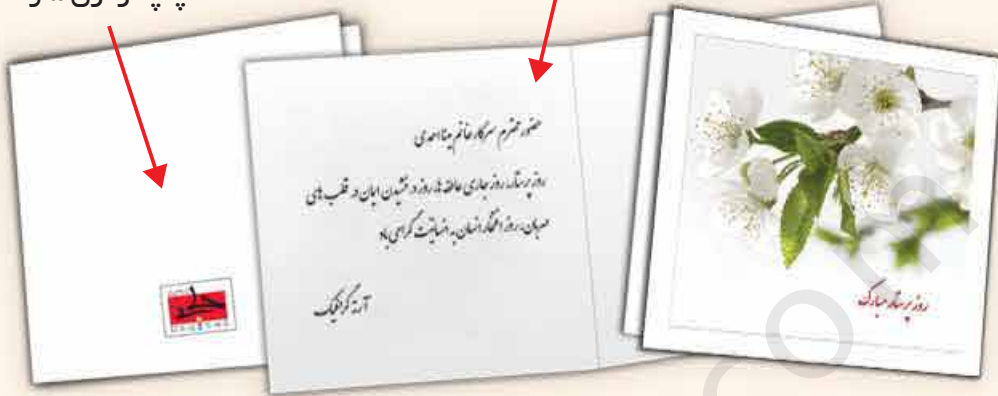 حضور محترم سرکار خانم بیتا احدی
روز پرستار، روز جاری عاطفه ها، روز درخشیدن ایمان در قلب های
مهربان، روز افتخار انسان به انسانیت گرامی باد
آرتد گرافیک
روز پرستار مبارک